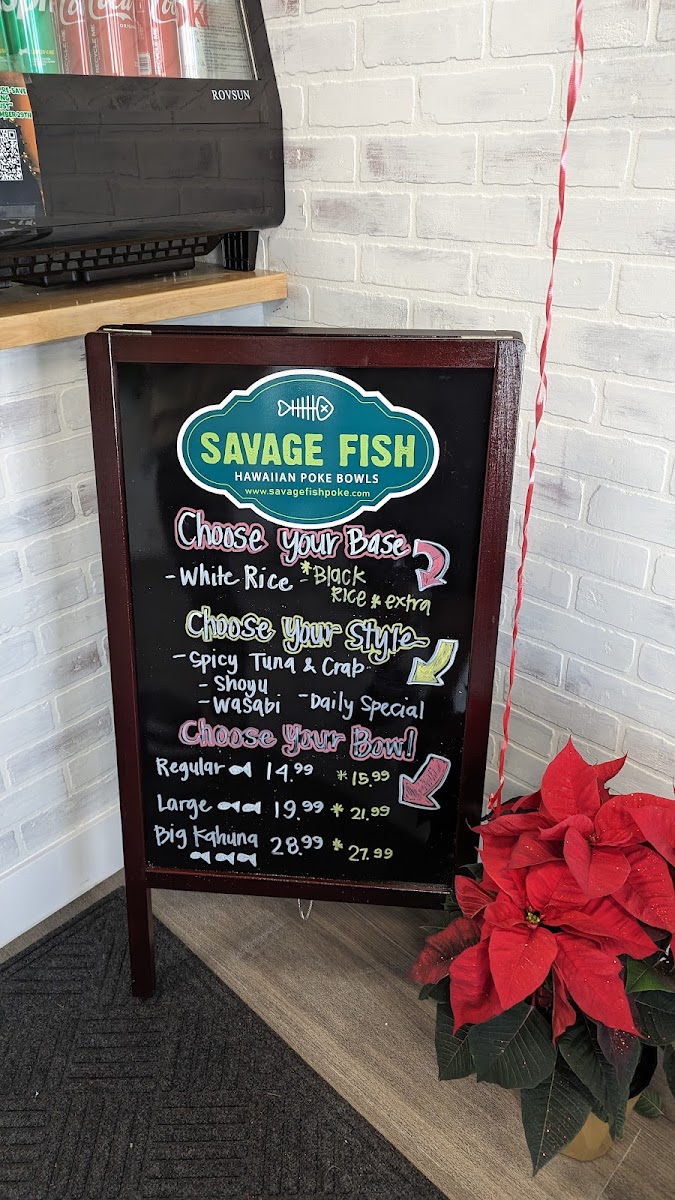 Coca-Cola
ROVSUN
SAVAGE FISH
HAWAIIAN POKE BOWLS
www.savagefishpoke.com
Choose your Base
- White Rice - *Black
Rice * extra
Choose your Style
- Spicy Tuna & Crab
- Shoyu
- Wasabi - Daily Special
Choose your Bowl
Regular 14.99 *15.99
Large 19.99 * 21.99
Big Kahuna 28.99 * 27.99